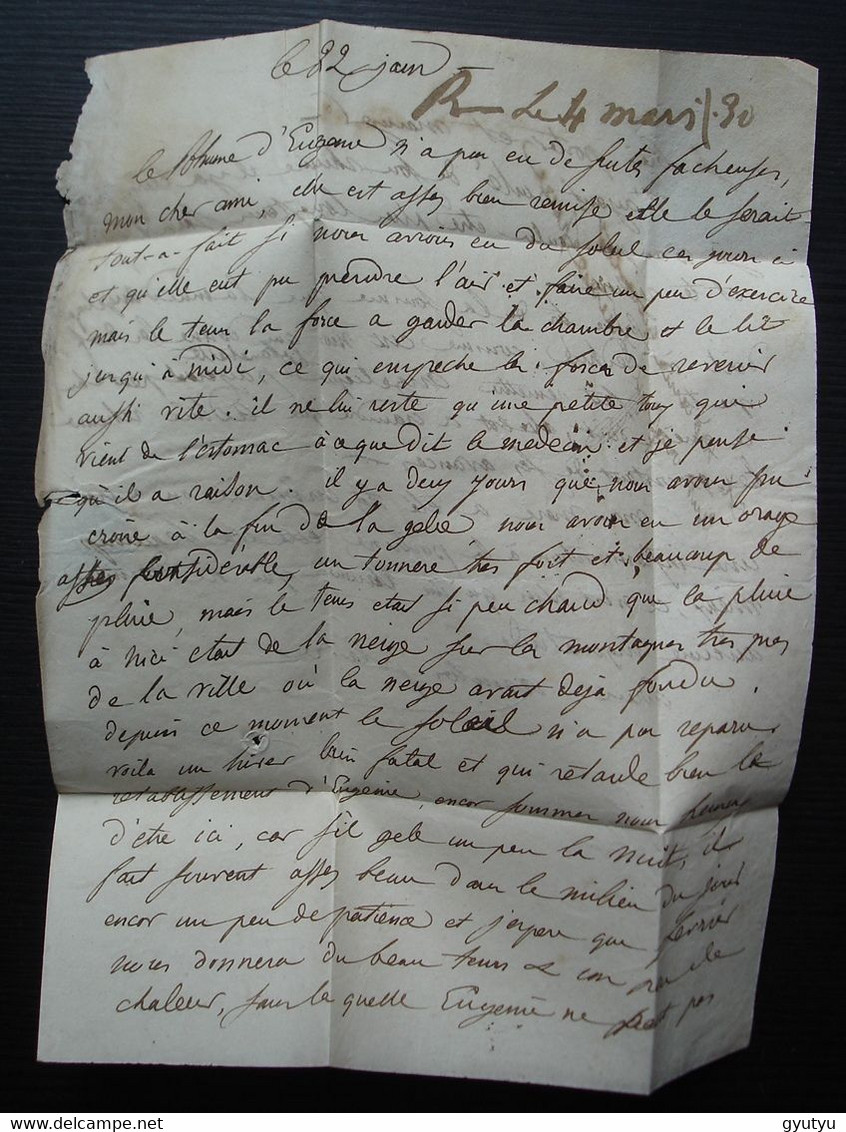 le 22 janv
R le 4 mars /.30
le Rhume d'Eugenie n'a pas eu de suites facheuses,
mon cher ami, elle est asses bien remise et elle le serait
tout-a-fait si nous avions eu du soleil ces jours ci
et qu'elle eut pu prendre l'air et faire un peu d'exercice
mais le tems la force a garder la chambre et le lit
jusqu'à midi, ce qui empeche les forces de revenir
aussi vite. il ne lui reste qu'une petite toux qui
vient de l'estomac à ce que dit le medecin et je pense
qu'il a raison. il y a deux jours que nous avons pu
croire à la fin de la gelée, nous avons eu un orage
asses considérable, un tonnere tres fort et beaucoup de
pluie, mais le tems etait si peu chaud que la pluie
à Nice etait de la neige sur les montagnes tres pres
de la ville où la neige avait deja fondu.
depuis ce moment le soleil n'a pas reparu
voila un hiver bien fatal et qui retarde bien le
retablissement d'Eugenie, encor sommes nous heureux
d'etre ici, car s'il gele un peu la nuit, il
fait souvent asses beau dans le milieu du jour
encor un peu de patience et j'espere que fevrier
nous donnera du beau tems et de la
chaleur, sans la quelle Eugenie ne peut pas
gyutyu